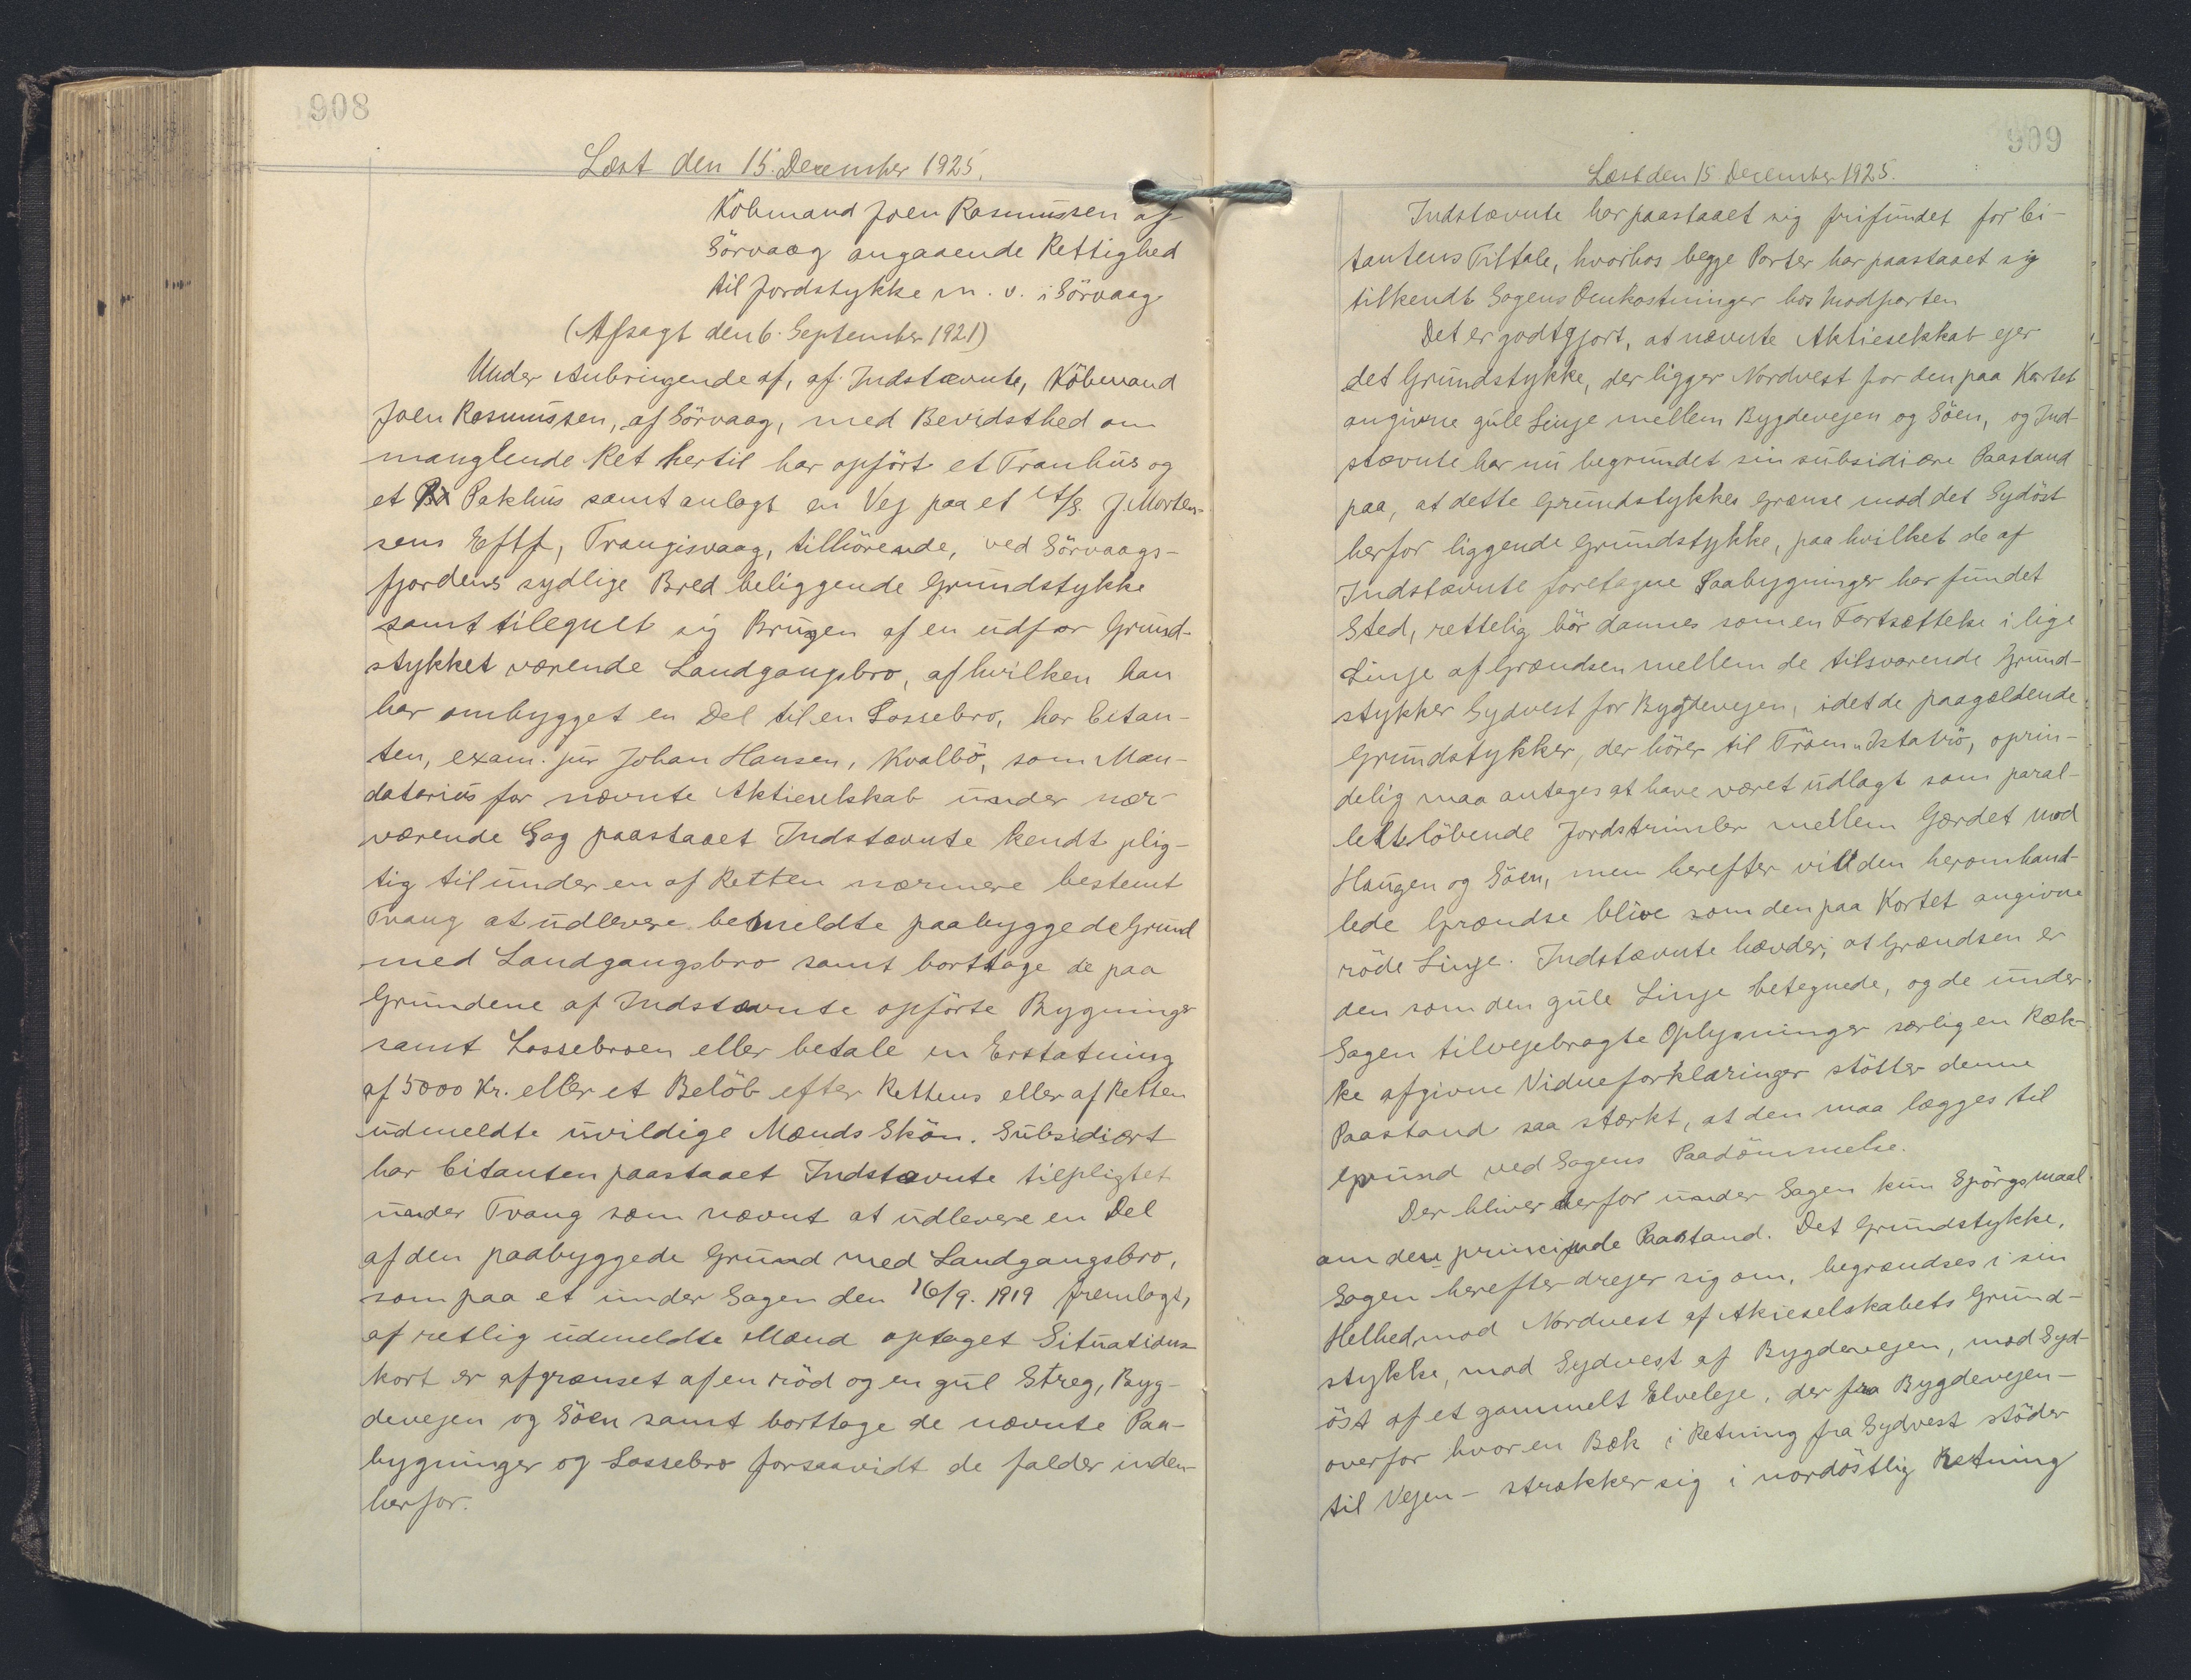 908
Læst den 15. December 1925.
Köbmand Joen Rasmussen af
Sörvaag angaaende Rettighed
til Jordstykke m. v. i Sörvaag
(Afsagt den 6. September 1921)
Under Anbringende af, af Indstævnte, Köbmand
Joen Rasmussen, af Sörvaag, med Bevidsthed om
manglende Ret hertil har opfört et Tranhus og
et Pakhus samt anlagt en Vej paa et A/S. J. Morten-
sens Eftf, Trangisvaag, tilhörende, ved Sörvaags-
fjordens sydlige Bred beliggende Grundstykke
samt tilegnet sig Brugen af en udfor Grund-
stykket værende Landgangsbro, af hvilken han
har ombygget en Del til en Lossebro, har Citan-
ten, exam. jur Johan Hansen, Kvalbö, som Man-
datarius for nævnte Aktieselskab under nær-
værende Sag paastaaet Indstævnte kendt plig-
tig til under en af Retten nærmere bestemt
Tvang at udlevere bemeldte paabyggede Grund
med Landgangsbro samt borttage de paa
Grundene af Indstævnte opförte Bygninger
samt Lossebroen eller betale en Erstatning
af 5000 Kr. eller et Belöb efter Rettens eller af Retten
udmeldte uvildige Mænds Skön. Subsidiært
har Citanten paastaaet Indstævnte tilpligtet
under Tvang som nævnt at udlevere en Del
af den paabyggede Grund med Landgangsbro,
som paa et under Sagen den 16/9. 1919 fremlagt,
af retlig udmeldte Mænd optaget Situations
kort er afgrænset af en röd og en gul Streg, Byg-
devejen og Söen samt borttage de nævnte Paa-
bygninger og Lossebro forsaavidt de falder inden-
herfor.
909
Læst den 15 December 1925.
Indstævnte har paastaaet sig frifundet for Ci-
tantens Tiltale, hvorhos begge Parter har paastaaet sig
tilkendt Sagens Omkostninger hos Modparten
Det er godtgjort, at nævnte Aktieselskab ejer
det Grundstykke, der ligger Nordvest for den paa Kortet
angivne gule Linje mellem Bygdevejen og Söen, og Ind-
stævnte har nu begrundet sin subsidiære Paastand
paa, at dette Grundstykkes Grænse mod det Sydöst
herfor liggende Grundstykke, paa hvilket de af
Indstævnte foretagne Paabygninger har fundet
Sted, rettelig bör dannes som en Fortsættelse i lige
Linje af Grændsen mellem de tilsvarende Grund-
stykker Sydvest for Bygdevejen, idet de paagældende
Grundstykker, der hörer til Tröen Istatrö, oprin-
delig maa antages at have været udlagt som paral-
leltlöbende Jordstrimler mellem Gærdet mod
Haugen og Söen, men herefter vil den heromhand-
lede Grændse blive som den paa Kortet angivne
röde Linje. Indstævnte hævder, at Grændsen er
den som den gule Linje betegnede, og de under
Sagen tilvejebragte Oplysninger særlig en Ræk-
ke afgivne Vidneforklaringer stötter denne
Paastand saa stærkt, at den maa lægges til
Grund ved Sagens Paadömmelse.
Der bliver herfor under Sagen kun Spörgsmaal
om den Paastand. Det Grundstykke,
Sagen herefter drejer sig om, begrændses i sin
Helhed mod Nordvest af Akieselskabets Grund-
stykke, mod Sydvest af Bygdevejen, mod Syd-
öst af et gammelt Elveleje, der fra Bygdevejen -
overfor hvor en Bæk i Retning fra Sydvest stöder
til Vejen - strækker sig i nordöstlig Retning